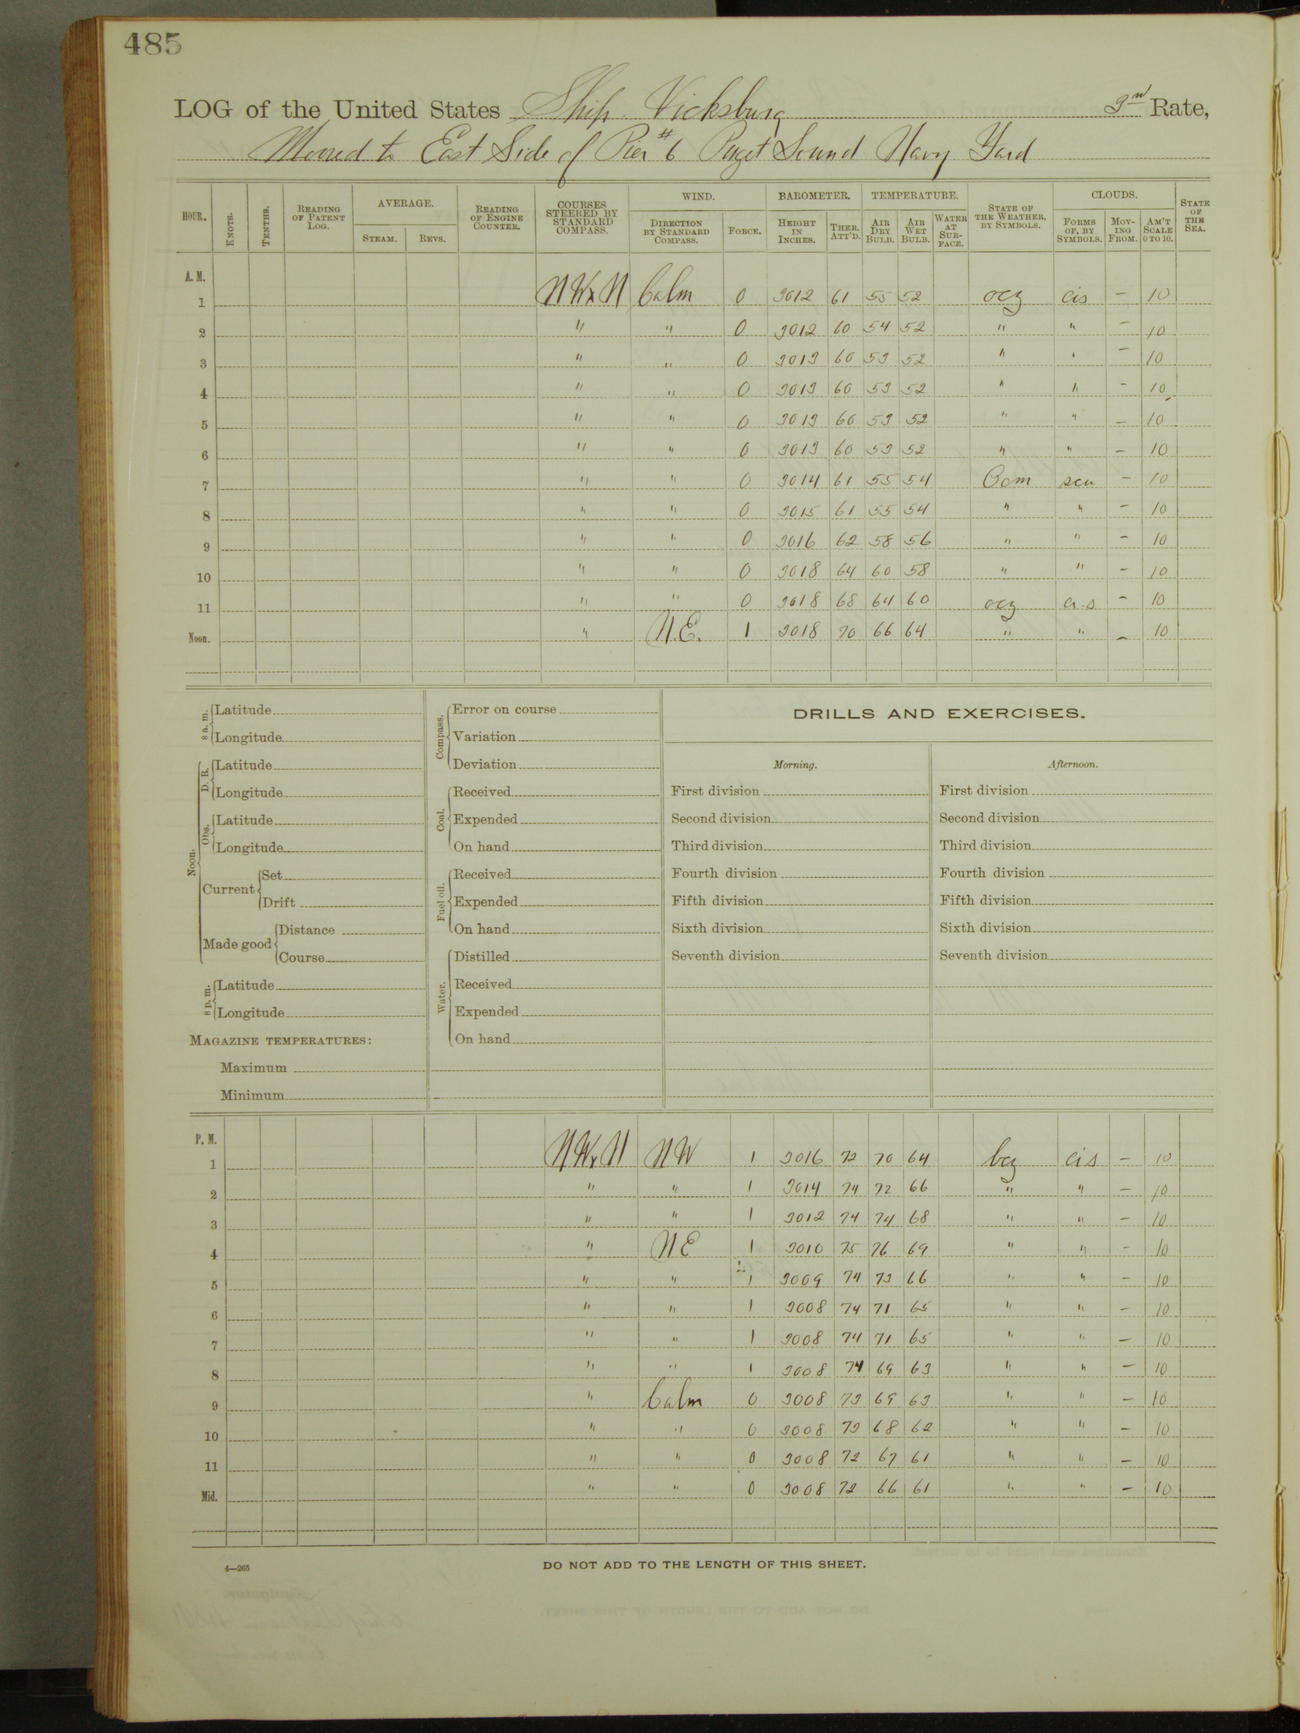 485
LOG of the United States Ship Vicksburg 3rd Rate,
Moored to East Side of Pier #6 Puget Sound Navy Yard
HOUR. KNOTS. TENTHS. READING OF PATENT LOG. AVERAGE. STEAM. REVS. READING OF ENGINE COUNTER. COURSES STEERED BY STANDARD COMPASS. WIND. DIRECTION BY STANDARD COMPASS. FORCE. BAROMETER. HEIGHT IN INCHES. THER. ATT'D. TEMPERATURE. AIR DRY BULB. AIR WET BULB. WATER AT SURFACE. STATE OF THE WEATHER, BY SYMBOLS. CLOUDS. FORMS OF, BY SYMBOLS. MOVING FROM. AM'T SCALE 0 TO 10. STATE OF THE SEA.
A. M.
1 NWxN Calm 0 3012 61 55 52 ocz cis – 10
2 " " 0 3012 60 54 52 " " – 10
3 " " 0 3013 60 53 52 " " – 10
4 " " 0 3013 60 53 52 " " – 10
5 " " 0 3013 60 53 52 " " – 10
6 " " 0 3013 60 53 52 " " – 10
7 " " 0 3014 61 55 54 Ocm scu – 10
8 " " 0 3015 61 55 54 " " – 10
9 " " 0 3016 62 58 56 " " – 10
10 " " 0 3018 64 60 58 " " – 10
11 " " 0 3018 68 64 60 ocz ci-s – 10
Noon. " N.E. 1 3018 70 66 64 " " – 10
8 a. m. Latitude
Longitude
Noon. D. R. Latitude
Longitude
Obs. Latitude
Longitude
Current Set
Drift
Made good Distance
Course
8 p. m. Latitude
Longitude
MAGAZINE TEMPERATURES:
Maximum
Minimum
Compass. Error on course
Variation
Deviation
Coal. Received
Expended
On hand
Fuel oil. Received
Expended
On hand
Water. Distilled
Received
Expended
On hand
DRILLS AND EXERCISES.
Morning. Afternoon.
First division First division
Second division Second division
Third division Third division
Fourth division Fourth division
Fifth division Fifth division
Sixth division Sixth division
Seventh division Seventh division
P. M.
1 NWxN NW 1 3016 72 70 64 bcz cis – 10
2 " " 1 3014 74 72 66 " " – 10
3 " " 1 3012 74 74 68 " " – 10
4 " NE 1 3010 75 76 69 " " – 10
5 " " 1 3009 74 73 66 " " – 10
6 " " 1 3008 74 71 65 " " – 10
7 " " 1 3008 74 71 65 " " – 10
8 " " 1 3008 74 69 63 " " – 10
9 " Calm 0 3008 73 69 63 " " – 10
10 " " 0 3008 73 68 62 " " – 10
11 " " 0 3008 72 67 61 " " – 10
Mid. " " 0 3008 72 66 61 " " – 10
4—265
DO NOT ADD TO THE LENGTH OF THIS SHEET.